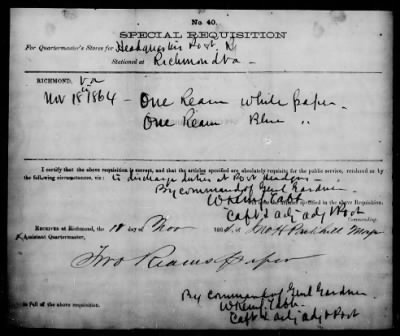 No. 40.
SPECIAL REQUISITION
For Quartermaster's Stores for Headquarters Post
Stationed at Richmond Va
RICHMOND, Va
Nov 18th 1864 — One Ream White paper —
One Ream Blue "
I certify that the above requisition is correct, and that the articles specified are absolutely requisite for the public service, rendered so by
the following circumstances, viz: to discharge duties at Post Headqrs —
By command of Genl Gardner
Capt & adj Post
Commanding.
RECEIVED at Richmond, the 18 day of Nov 186 4, of Jno H Major
Assistant Quartermaster,
Two Reams paper
in full of the above requisition.
By command of Genl Gardner
Capt & adj Post